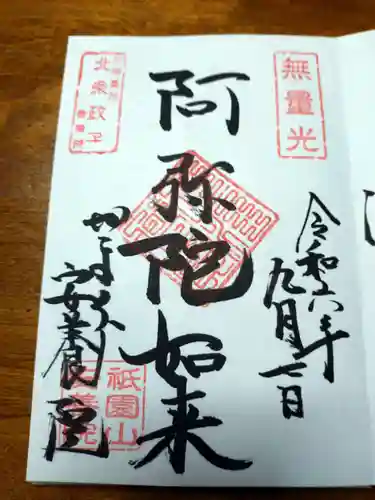 無量光
令和六年
九月七日
阿弥陀如来
北条政子
かまくら
安養院
祇園山
安養院